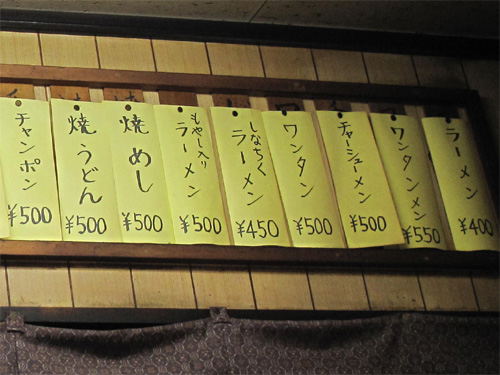 ラーメン
¥400
ワンタンメン
¥550
チャーシューメン
¥500
ワンタン
¥500
しなちく
ラーメン
¥450
もやし入り
ラーメン
¥500
焼めし
¥500
焼うどん
¥500
チャンポン
¥500